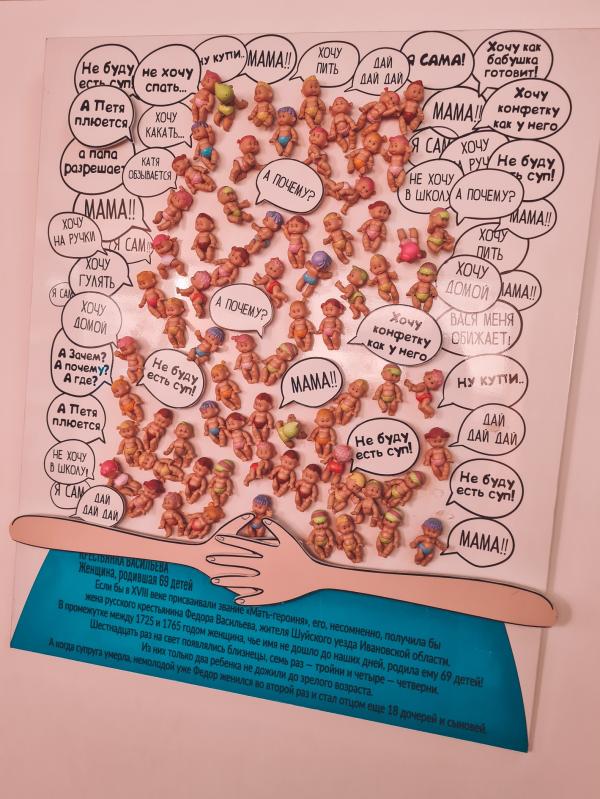 Не буду
есть суп!
не хочу
спать...
ну купи..
МАМА!!
ХОЧУ
ПИТЬ
ДАЙ
ДАЙ ДАЙ
Я САМА!
Хочу как
бабушка
готовит!
А Петя
плюется
ХОЧУ
КАКАТЬ...
МАМА!!
Хочу
конфетку
как у него
а папа
разрешает
КАТЯ
ОБЗЫВАЕТСЯ
А ПОЧЕМУ?
Я САМ
ХОЧУ
НА РУЧ
Не буду
есть суп!
НЕ ХОЧУ
В ШКОЛУ
А ПОЧЕМУ?
МАМА!!
МАМА!!
ХОЧУ
НА РУЧКИ
Я САМ!
ХОЧУ
ПИТЬ
ХОЧУ
ГУЛЯТЬ
ХОЧУ
ДОМОЙ
МАМА!!
Я САМ
ХОЧУ
ДОМОЙ
А ПОЧЕМУ?
Хочу
конфетку
как у него
ВАСЯ МЕНЯ
ОБИЖАЕТ!
А Зачем?
А почему?
А где?
Не буду
есть суп!
МАМА!!
НУ КУПИ..
А Петя
плюется
ДАЙ
ДАЙ ДАЙ
Не буду
есть суп!
НЕ ХОЧУ
В ШКОЛУ!
Не буду
есть суп!
Я САМ
ДАЙ
ДАЙ ДАЙ
МАМА!!
КРЕСТЬЯНКА ВАСИЛЬЕВА
Женщина, родившая 69 детей
Если бы в XVIII веке присваивали звание «Мать-героиня», его, несомненно, получила бы
жена русского крестьянина Федора Васильева, жителя Шуйского уезда Ивановской области.
В промежутке между 1725 и 1765 годом женщина, чье имя не дошло до наших дней, родила ему 69 детей!
Шестнадцать раз на свет появлялись близнецы, семь раз — тройни и четыре — четверни.
Из них только два ребенка не дожили до зрелого возраста.
А когда супруга умерла, немолодой уже Федор женился во второй раз и стал отцом еще 18 дочерей и сыновей.